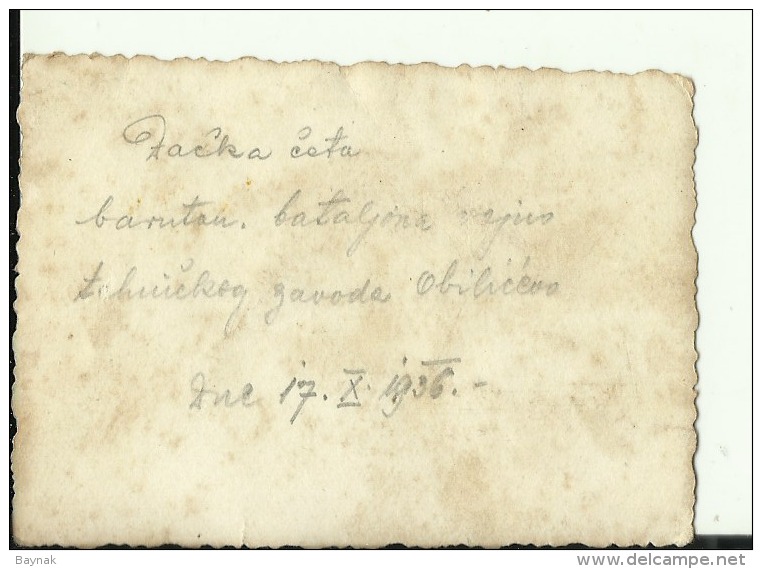 Đačka četa
barutan. bataljona vojno
tehničkog zavoda Obilićevo
Dne 17. X. 1936.-
Baynak
www.delcampe.net